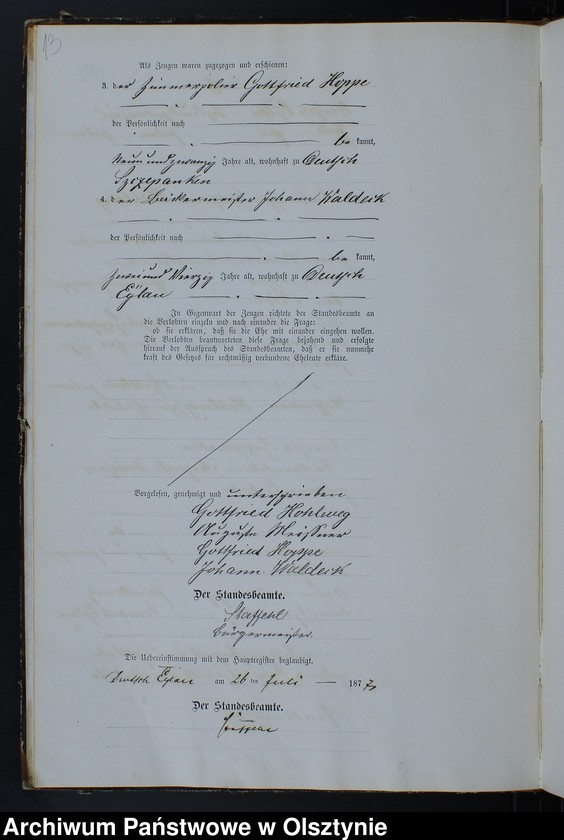 13
Als Zeugen waren zugezogen und erschienen:
3. der Zimmerpolier Gottfried Hoppe
der Persönlichkeit nach
be kannt,
Neun und zwanzig Jahre alt, wohnhaft zu Deutsch
Szczepanken
4. der Bäckermeister Johann Waldeck
der Persönlichkeit nach
be kannt,
zwei und Vierzig Jahre alt, wohnhaft zu Deutsch
Eylau
In Gegenwart der Zeugen richtete der Standesbeamte an
die Verlobten einzeln und nach einander die Frage:
ob sie erklären, daß sie die Ehe mit einander eingehen wollen.
Die Verlobten beantworteten diese Frage bejahend und erfolgte
hierauf der Ausspruch des Standesbeamten, daß er sie nunmehr
kraft des Gesetzes für rechtmäßig verbundene Eheleute erkläre.
Vorgelesen, genehmigt und unterschrieben
Gottfried Hohlweg
Auguste Meissner
Gottfried Hoppe
Johann Waldeck
Der Standesbeamte.
Staffehl
Bürgermeister.
Die Uebereinstimmung mit dem Hauptregister beglaubigt.
Deutsch Eylau am 26 ten Juli 187 7
Der Standesbeamte.
Archiwum Państwowe w Olsztynie